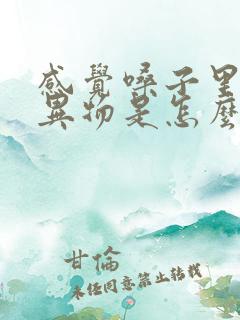 感覺嗓子里
異物是怎麼
甘倫
未經同意禁止轉載